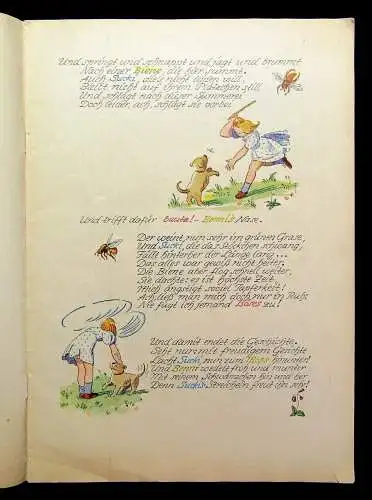 Und springt und schnappt und jagt und brummt
Nach einer Biene, die hier summt.
Auch Sucki, die's nicht leiden will,
Bleibt nicht auf ihrem Plätzchen still
Und schlägt nach dieser Summerei
Doch leider, ach, schlägt sie vorbei
Und trifft dafür bauts! - Bennis Nase.
Der weint nun sehr im grünen Grase,
Und Sucki, die das Stöckchen schwang,
Fällt hinterher der Länge lang...
Das alles war gewiß nicht heiter.
Die Biene aber flog schnell weiter,
Sie dachte: es ist höchste Zeit,
Mich ängstigt soviel Tapferkeit!
Ach ließ man mich doch nur in Ruh:
Nie fügt ich jemand Böses zu!
Und damit endet die Geschichte.
Seht nur mit freudigem Gesichte
Lacht Sucki nun zum Himmel hinauf!
Und Benni wedelt froh und munter
Mit seinem Schwänzchen hin und her
Denn Suckis Streicheln freut ihn sehr!